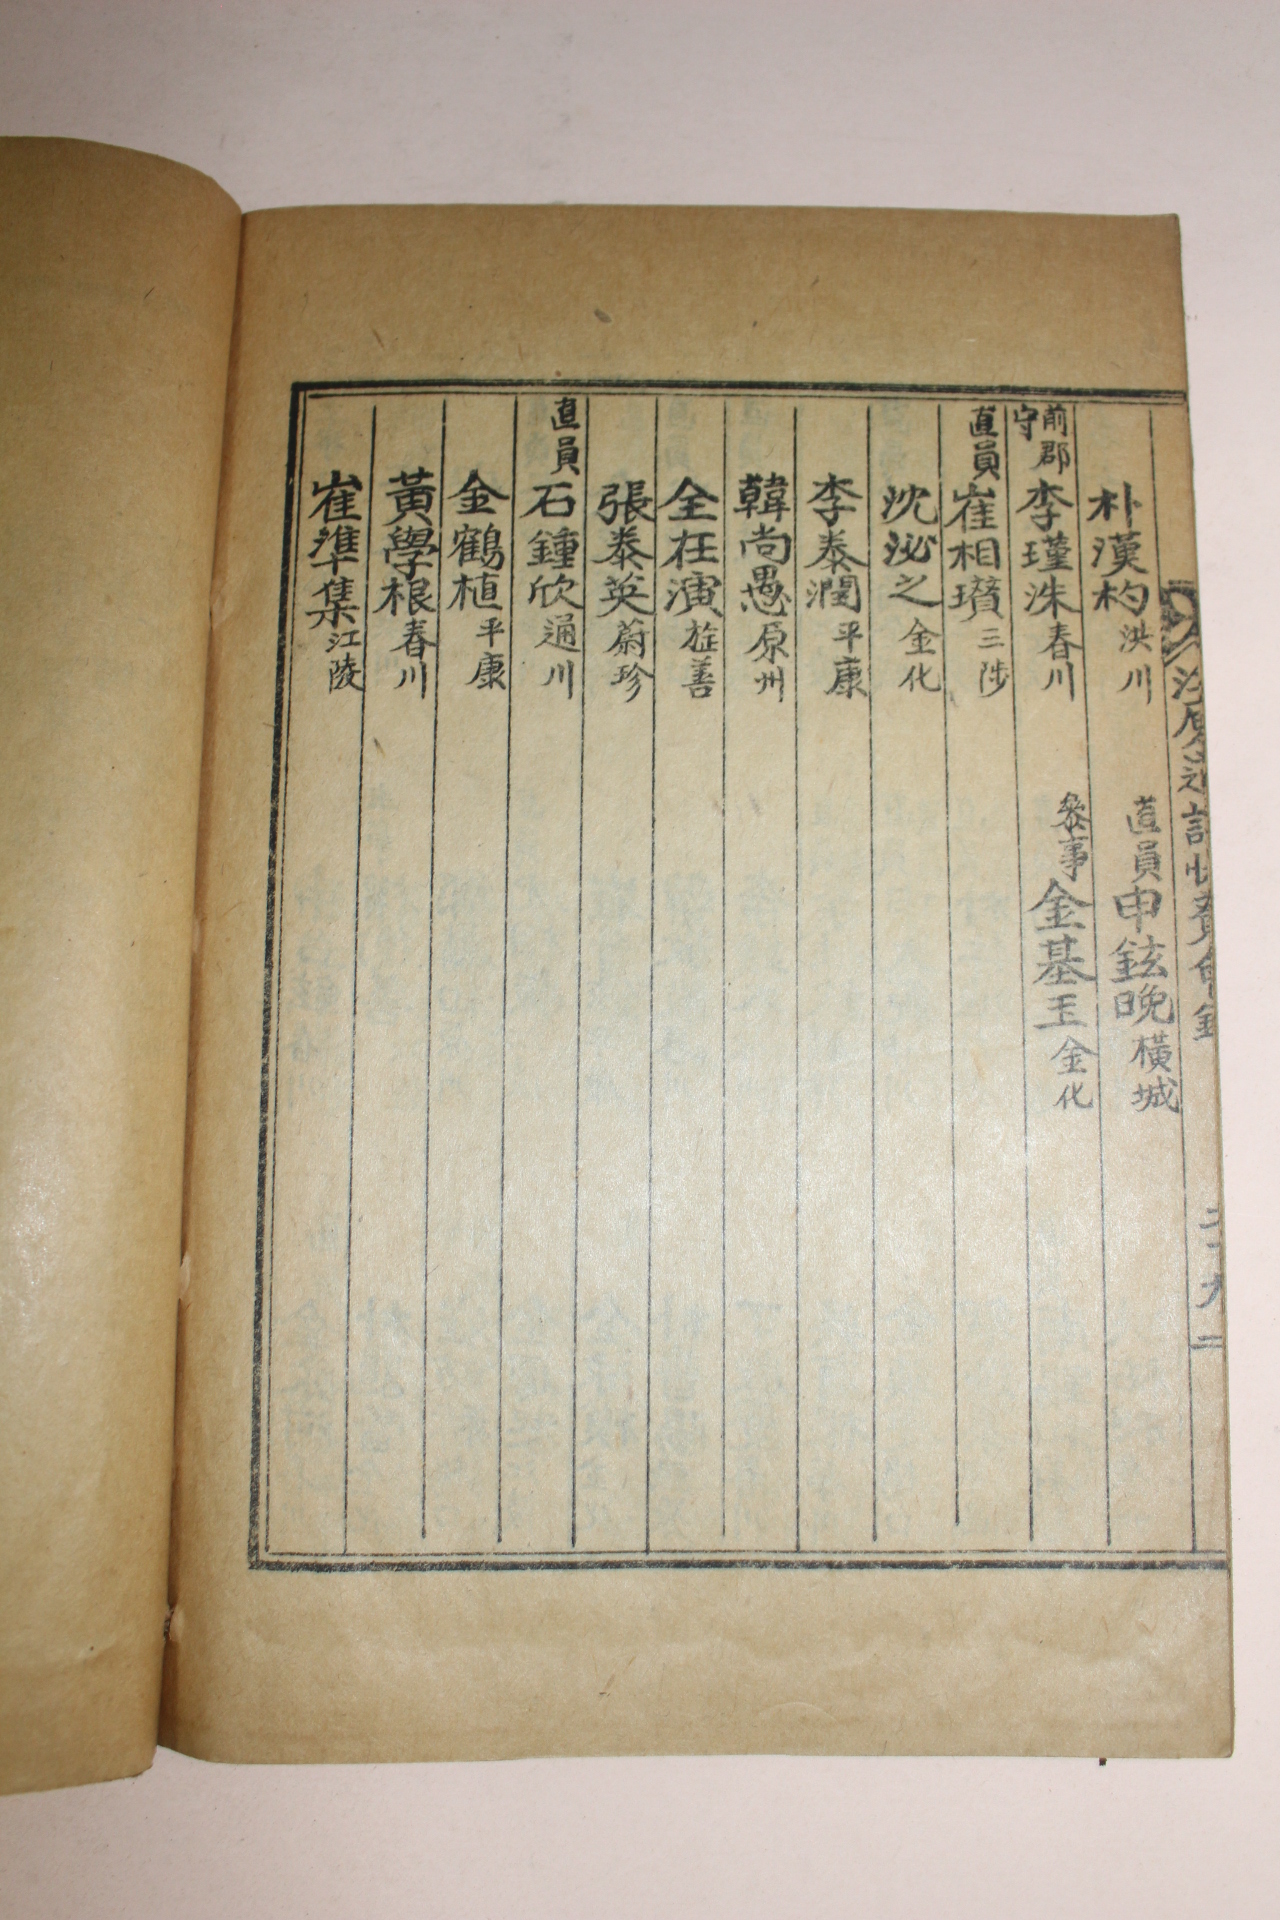 朴漢杓 洪川
直員 申鉉晩 橫城
前郡守 李瑾洙 春川
叅事 金基玉 金化
直員 崔相瓚 三陟
沈泌之 金化
李泰潤 平康
韓尚愚 原州
全在演 旌善
張泰英 蔚珍
直員 石鍾欣 通川
金鶴植 平康
黃學根 春川
崔準集 江陵